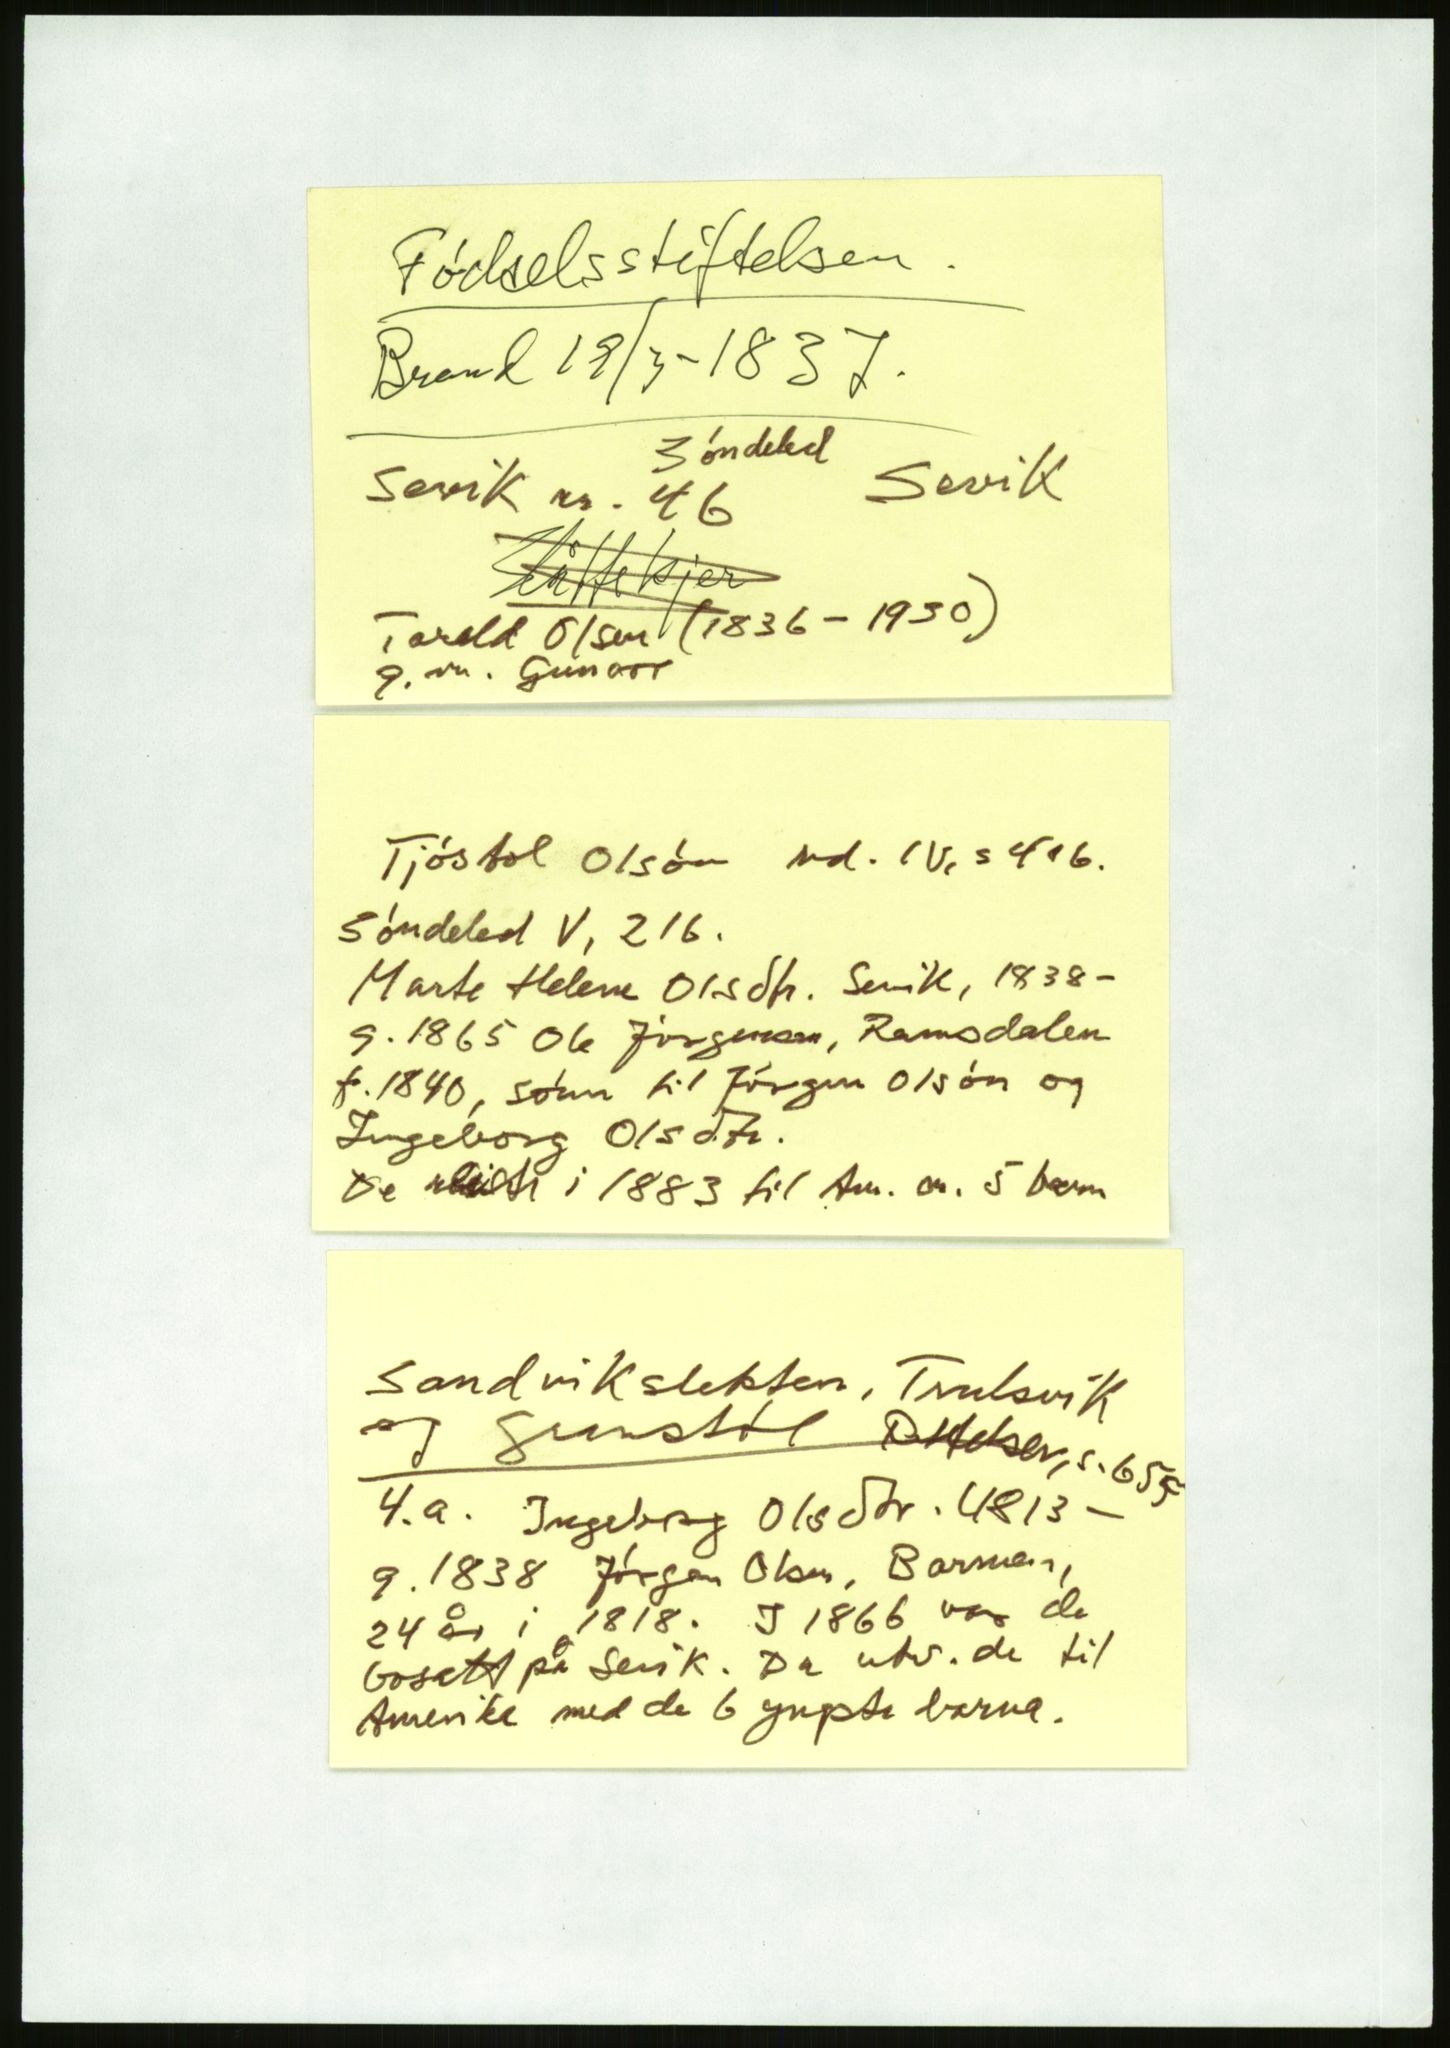 Fódselsstiftelsen.
Brand 19/3-1837.
Sóndeled
Sevik nr. 46 Sevik
Torald Olsen (1836-1930)
g. m. Gunvor
Tjóstol Olsón nd. IV, s 416.
Sóndeled V, 216.
Marte Helene Olsdtr. Sevik, 1838-
g. 1865 Ole Jórgensen, Ramsdalen
f. 1840, sónn til Jórgen Olsón og
Ingeborg Olsdtr.
De i 1883 til Am. m. 5 barn
Sandvikslekten, Trulsvik
og Grunstól s. 655
4.a. Ingeborg Olsdtr. 4813-
g. 1838 Jórgen Olsen, Barmen,
24 år i 1818. I 1866 var de
bosatt på Sevik. Da utv. de til
Amerika med de 6 yngste barna.